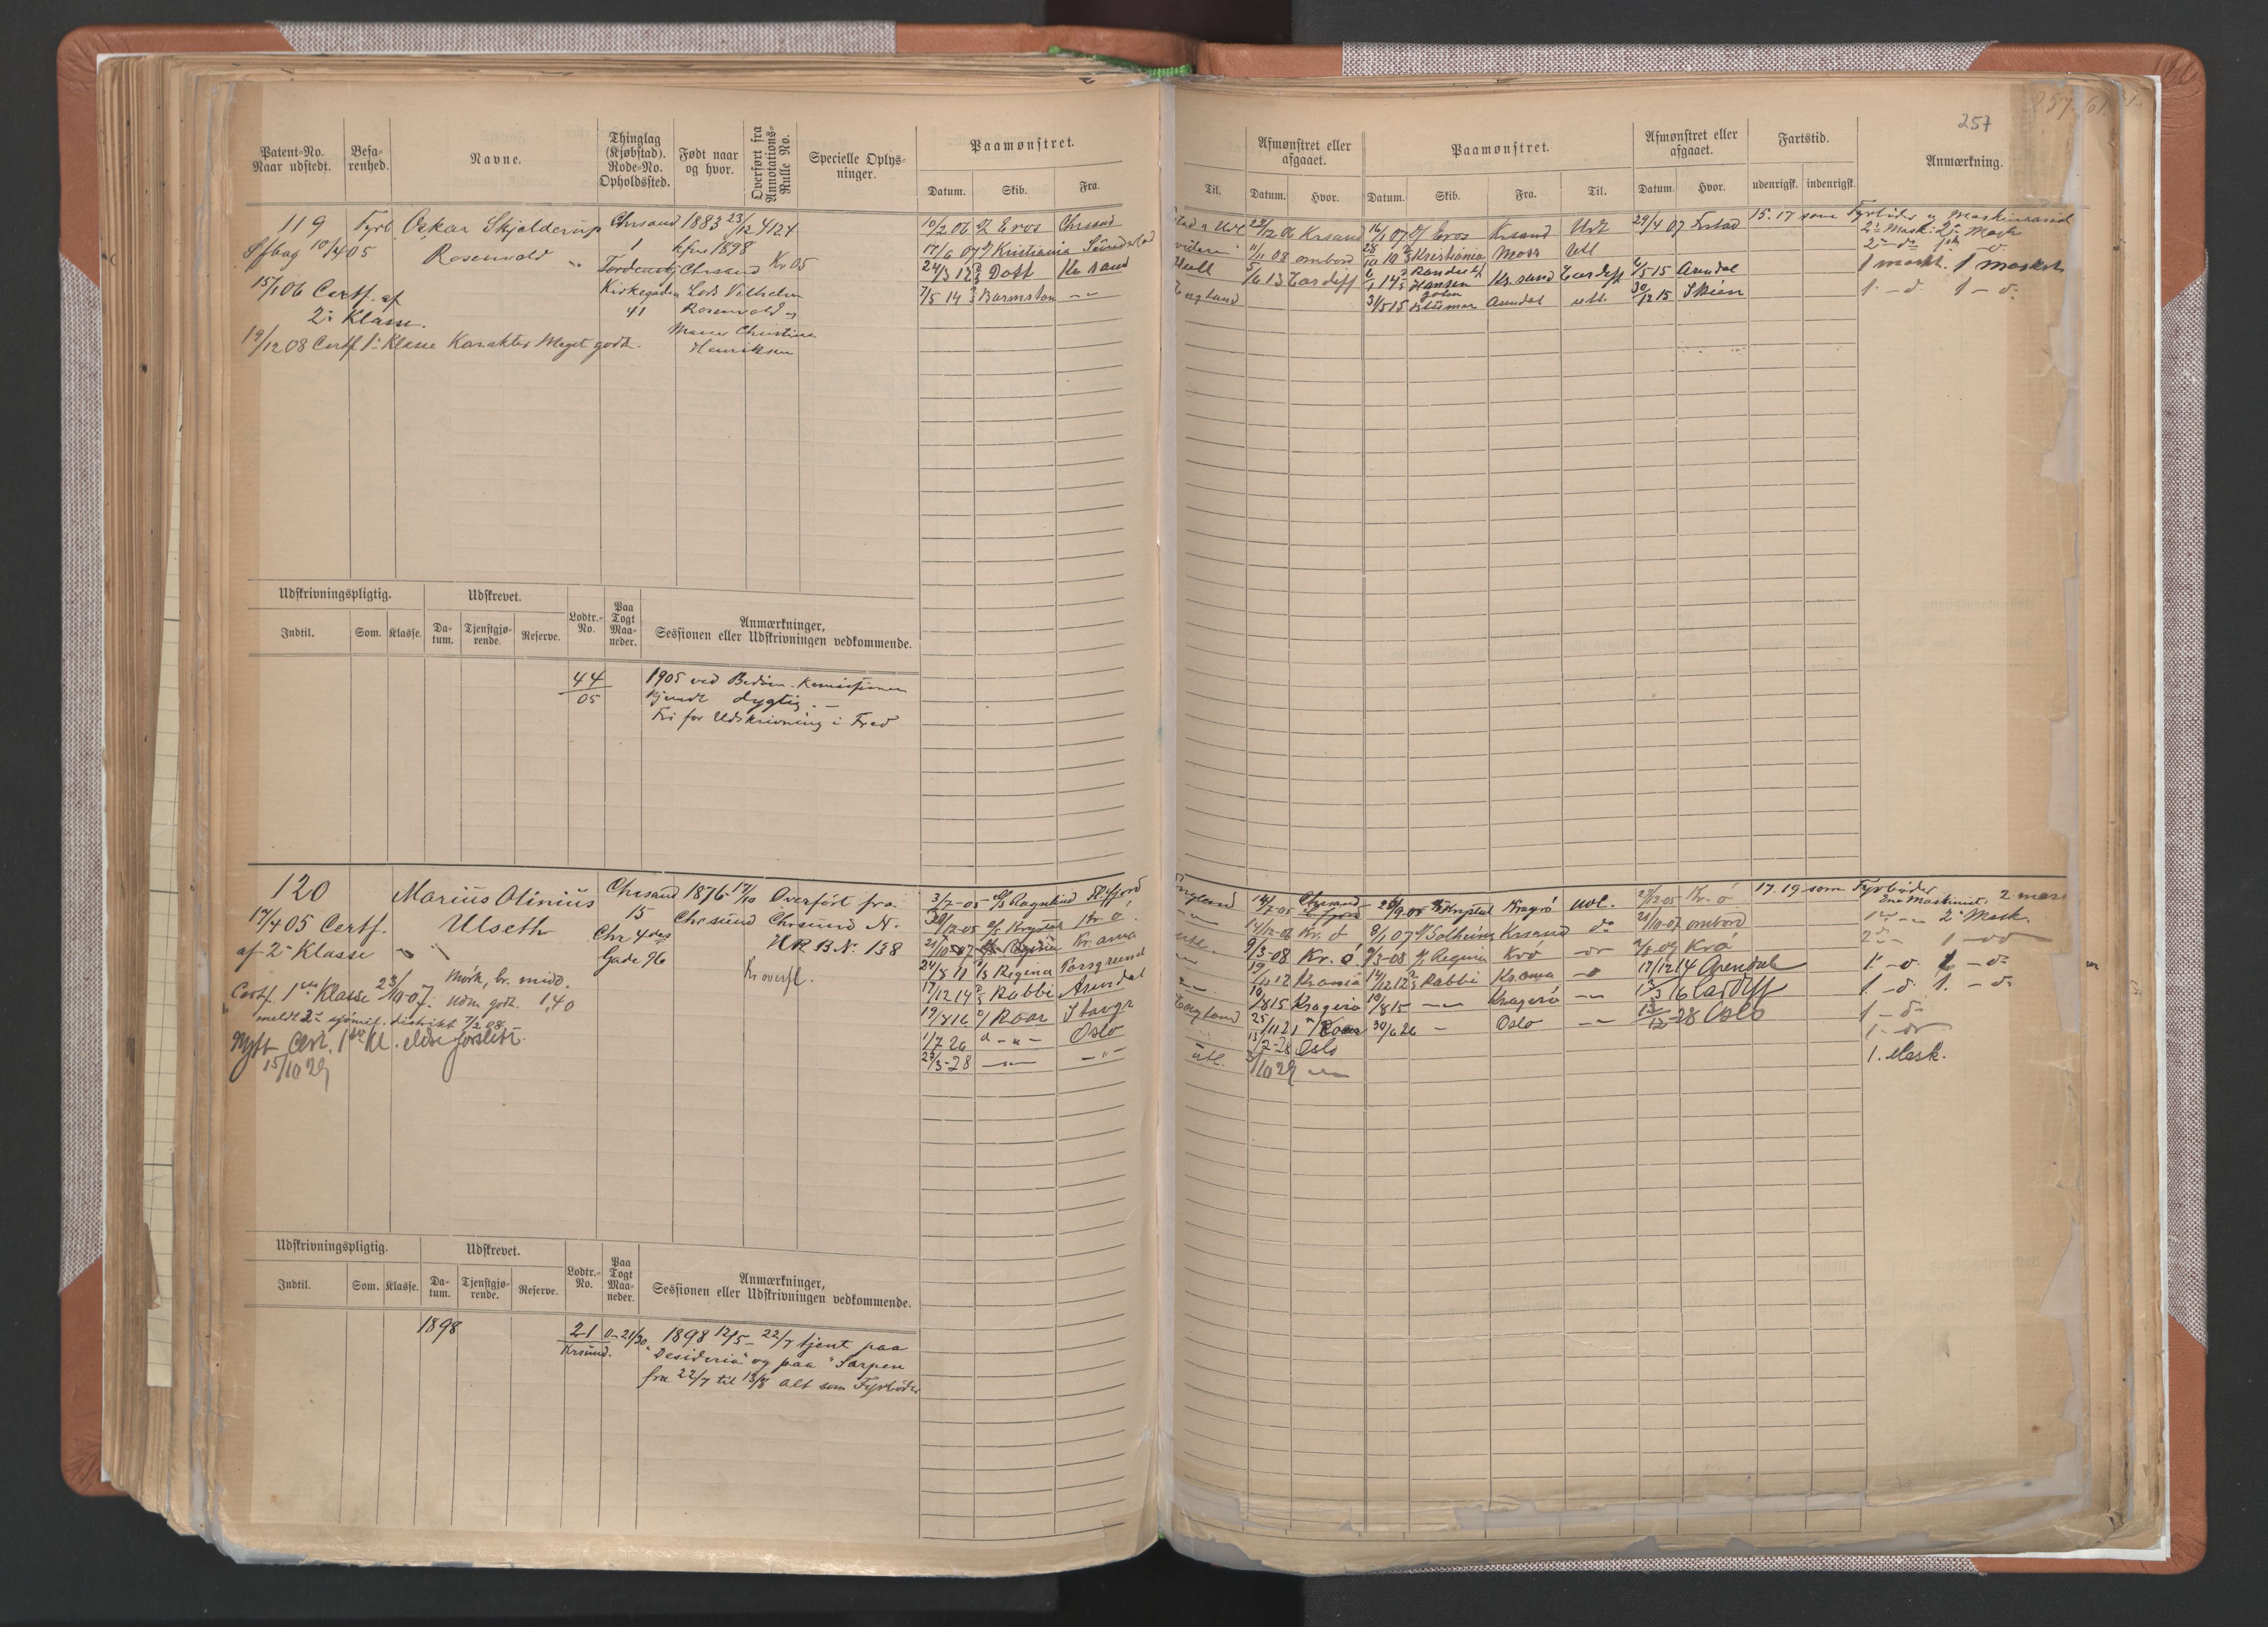 257
Patent-No. Naar udstedt.
Befarenhed.
Navne.
Thinglag (Kjøbstad). Rode-No. Opholdssted.
Født naar og hvor.
Overført fra Annotations-Rulle No.
Specielle Oplysninger.
Paamønstret.
Datum. Skib. Fra. Til.
Afmønstret eller afgaaet.
Datum. Hvor.
Paamønstret.
Datum. Skib. Fra. Til.
Afmønstret eller afgaaet.
Datum. Hvor.
Fartstid.
udenrigsk. indenrigsk.
Anmærkning.
119 Fyrb. Oskar Skjolderup Chrsand 1883 23/12 4124
Rosenvold 1 1898
10/4 05
Tordenskj Chrsund Kr 05
Kirkegaden Lods Vilhelm
41 Rosenvold og
Christine
Henriksen
15/1 06 Certf. af
2. Klasse.
19/12 08 Certf. 1. Klasse Karakter Meget godt.
10/2 06 Eros Chrsand
17/6 07 Kristiania
24/3 13 Dott Kr sand
7/5 14 Barmston
22/12 06 Krsand 16/1 07 Eros Krsand Udl 29/4 07 Frstad 15.17 som Fyrbøder og Maskinassist
11/11 08 ombord 28/10 10 Kristiania Moss Utl
Hull 5/6 13 Cardiff 6/1 14 Hansen Kr sand Cardiff 6/5-15 Arendal 1 maskt. 1 maskst
England 31/5 15 Arendal utl. 30/12 15 Skien
Udskrivningspligtig.
Udskrevet.
Lodtr.-No.
Paa Togt Maaneder.
Anmærkninger, Sessionen eller Udskrivningen vedkommende.
Indtil. Som. Klasse. Datum. Tjenstgjørende. Reserve.
44
05
1905 ved Bedøm. Komissionen
kjendt dygtig. —
Fri for Udskrivning i Fred
120 Marius Olinius Chrsand 1876 17/10 Overført fra
17/4 05 Certf. Ulseth 15 Chrsund Chrsund N.
af 2. Klasse Chr 4des H R B N. 138
Gade 96 Kr overfl.
Certf. 1ste Klasse 23/10-07. Mørk, br. midd.
Udm. godt. 1,40
meldt 2. sjømil. distrikt 7/2 08.
Nytt Cert. 1ste Kl. eldre forslitt.
15/10 29
3/7-05 Ragnhild
Krystal Kr. ø
21/10 07 Regina Kr. ania
24/8 11 Regina Porsgrund
17/12 14 Rabbi Arendal
19/8 16 Roar Stavgr
1/7 26 Oslo
23/3-28
England 14/7-05 Chrsand 26/9-05 Krystal Kragrø udl. 29/12 05 Kr. ø 17.19 som Fyrbøder
14/12-06 Kr. ø 8/1 07 Solheim Krsand do 21/10-07 ombord 2 Mask.
9/3-08 Kr. ø 9/3-08 Regina Krø 2/8-09 Krø
Krania 14/12 12 Rabbi Krania 17/12 14 Arendal
10/8 15 Kragerø 10/8 15 Kragerø 13/3 16 Cardiff
England 25/11 21 Roar 30/6 26 Oslo 13/12-28 Oslo
13/2-28 Oslo
utl. 3/10 29
1. Mask.
Udskrivningspligtig.
Udskrevet.
Lodtr.-No.
Paa Togt Maaneder.
Anmærkninger, Sessionen eller Udskrivningen vedkommende.
Indtil. Som. Klasse. Datum. Tjenstgjørende. Reserve.
1898 21 0-21/30 1898 12/5 - 22/7 tjent paa
Krsund. "Desideria" og paa "Sarpen
fra 22/7 til 13/8 alt som Fyrbøder